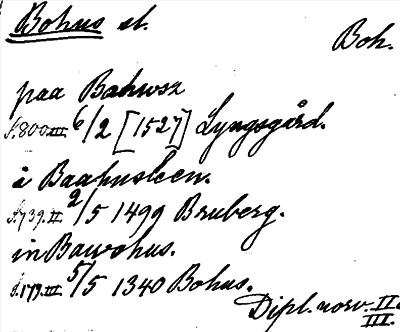 Bohus sl.
Boh.
paa Bahwsz
S.800.III. 6/2 [1527] Lyngsgård.
å Baahusleen.
S.739.II. 2/5 1499 Bruberg.
in Bawohus.
S.179.III. 5/5 1340 Bohus.
Dipl. norv. II.
III.